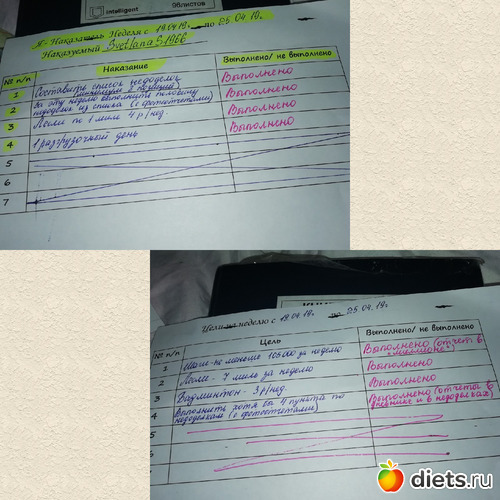 intelligent
96листов
Я- Наказатель Недели с 19.04.19г. по 25.04.19г.
Наказуемый SvetlanaS1966
№ п/п Наказание Выполнено/ не выполнено
1 Составить список недоделок (минимум 7 позиций) Выполнено
2 За эту неделю выполнить половину недоделок из списка (с фотоотчетами) Выполнено
3 Лесли по 1 миле 4р/нед. Выполнено
4 1 разгрузочный день Выполнено
5
6
7
Цели на неделю с 19.04.19г. по 25.04.19г.
№ п/п Цель Выполнено/ не выполнено
1 Шаги - не менее 105000 за неделю Выполнено (отчет в "миллионе")
2 Лесли - 7 миль за неделю Выполнено
3 Бадминтон - 3р/нед. Выполнено
4 Выполнить хотя бы 4 пункта по недоделкам (с фотоотчетами) Выполнено (отчеты в дневнике и в недоделках)
5
6
diets.ru